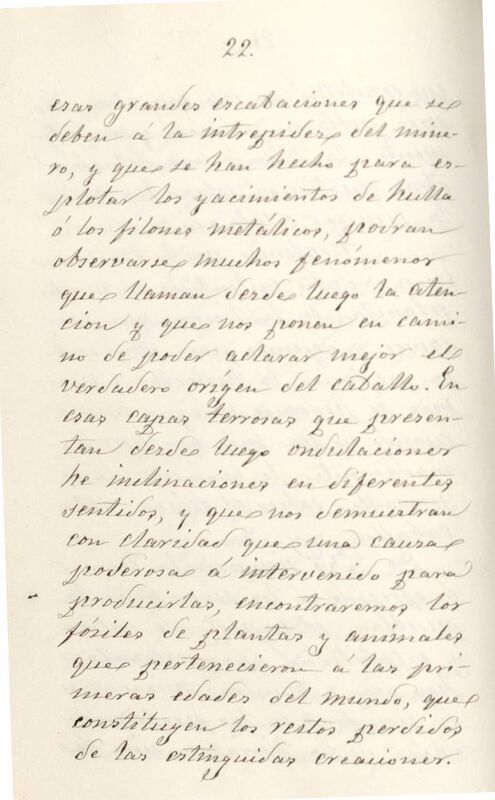 22.
esas grandes escabaciones que se
deben á la intrepidez del mine-
ro, y que se han hecho para es-
plotar los yacimientos de hulla
ó los filones metálicos, podran
observarse muchos fenómenos
que llaman desde luego la aten-
cion y que nos ponen en cami-
no de poder aclarar mejor el
verdadero origen del caballo. En
esas capas terrosas que presen-
tan desde luego ondulaciones
he inclinaciones en diferentes
sentidos, y que nos demuestran
con claridad que una causa
poderosa á intervenido para
producirlas, encontraremos los
fósiles de plantas y animales
que pertenecieron á las pri-
meras edades del mundo, que
constituyen los restos perdidos
de las estinguidas creaciones.